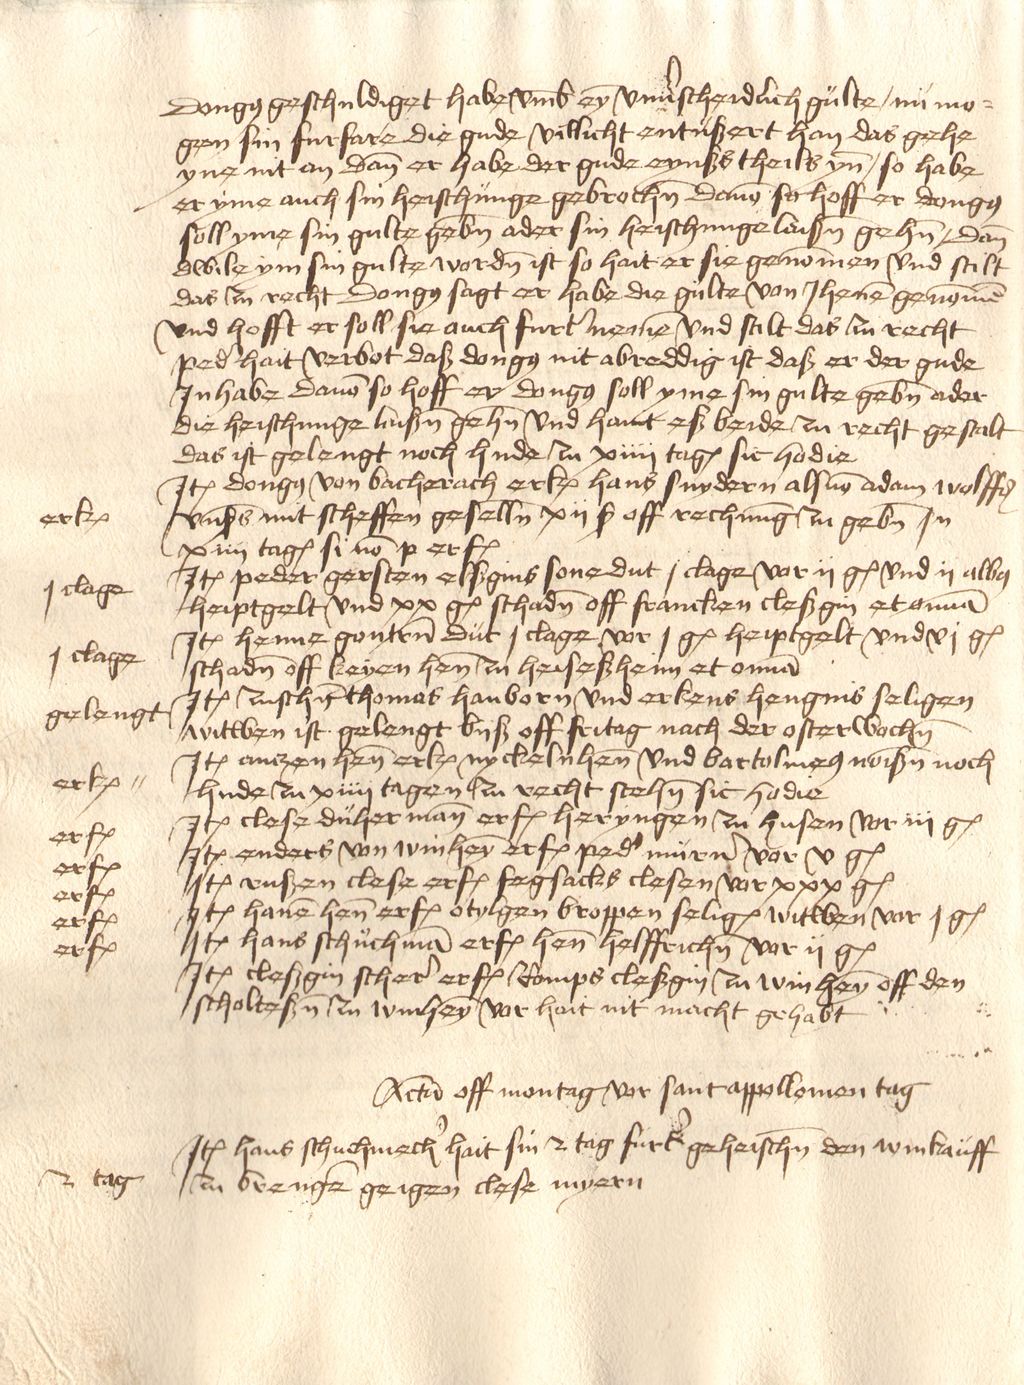 Dongus geschuldiget habe umb ey unverscheidlich gulte / nu mo-
gen sin furfare die gude villicht entußert han das gehe
yne nit an dan er habe der gude eynßs theils yn / so habe
er yme auch sin heischunge gebrochn davo so hoff er dongus
soll yme sin gulte gebn ader sin heischunge laißn gehn / dan
dwile ym sin gulte wordn ist so hait er sie genomen und stilt
das zu recht Dongus sagt er habe die gulte von Jhene genome
und hofft er soll sie auch furter neme und stilt das zu recht
peder hait verbot daß dongus nit abreddig ist daß er der gude
Inhabe davo so hoff er dongus soll yme sin gulte gebn ader
die heischunge laißn gehn und haint eß beide zu recht gestalt
das ist gelengt noch hude zu xiiii tag sic hodie
erk
Itm dongus von bacherach erk hans snydern alsvo adam wolffs
unßs mit scheffen geselln xii ß off rechnung zu gebn In
xiiii tag si no p erf
j clage
Itm peder gersten elßgins sone dut j clage vor ii g und ii albus
heiptgelt und xx g schadn off francken cleßgin et omnia
j clage
Itm henne gontrn dut j clage vor j g heiptgelt und vj g
schadn off keyen hen zu heiseßheim et omnia
gelengt
Itm zuschn thomas hanborn und erkens hengins seligen
witwen ist gelengt bieß off fritag nach der osterwochn
erk
Itm anczen hen erk nyckeln hen und bartolmeus noißn noch
hude zu xiiii tagen zu recht stehn sic hodie
erf
Itm clese duherman erf heryngen zu husen vor iii g
erf
Itm enders von winhey erf peder murer vor v g
erf
Itm rußen clese erf fegsacks clesen vor xxx g
erf
Itm hane hen erf otylgen broppen selig witwen vor j g
erf
Itm hans schuchma erf hen helffrichn vor ii g
Itm cleßgin scherer erf komps cleßgin zu winhey off den
scholteßn zu winhey vor hait nit macht gehabt
Actu off montag vor sant appollonien tag
2 tag
Itm hans schuchmecher hait sin 2 tag furter geheischn den winkauff
zu brenge geigen clese myern